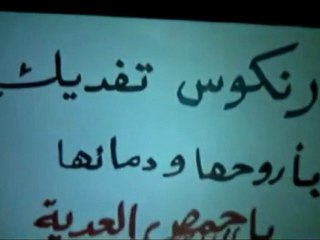 رنكوس تفديك
بأروحها ودمائها
يا حمص العدية